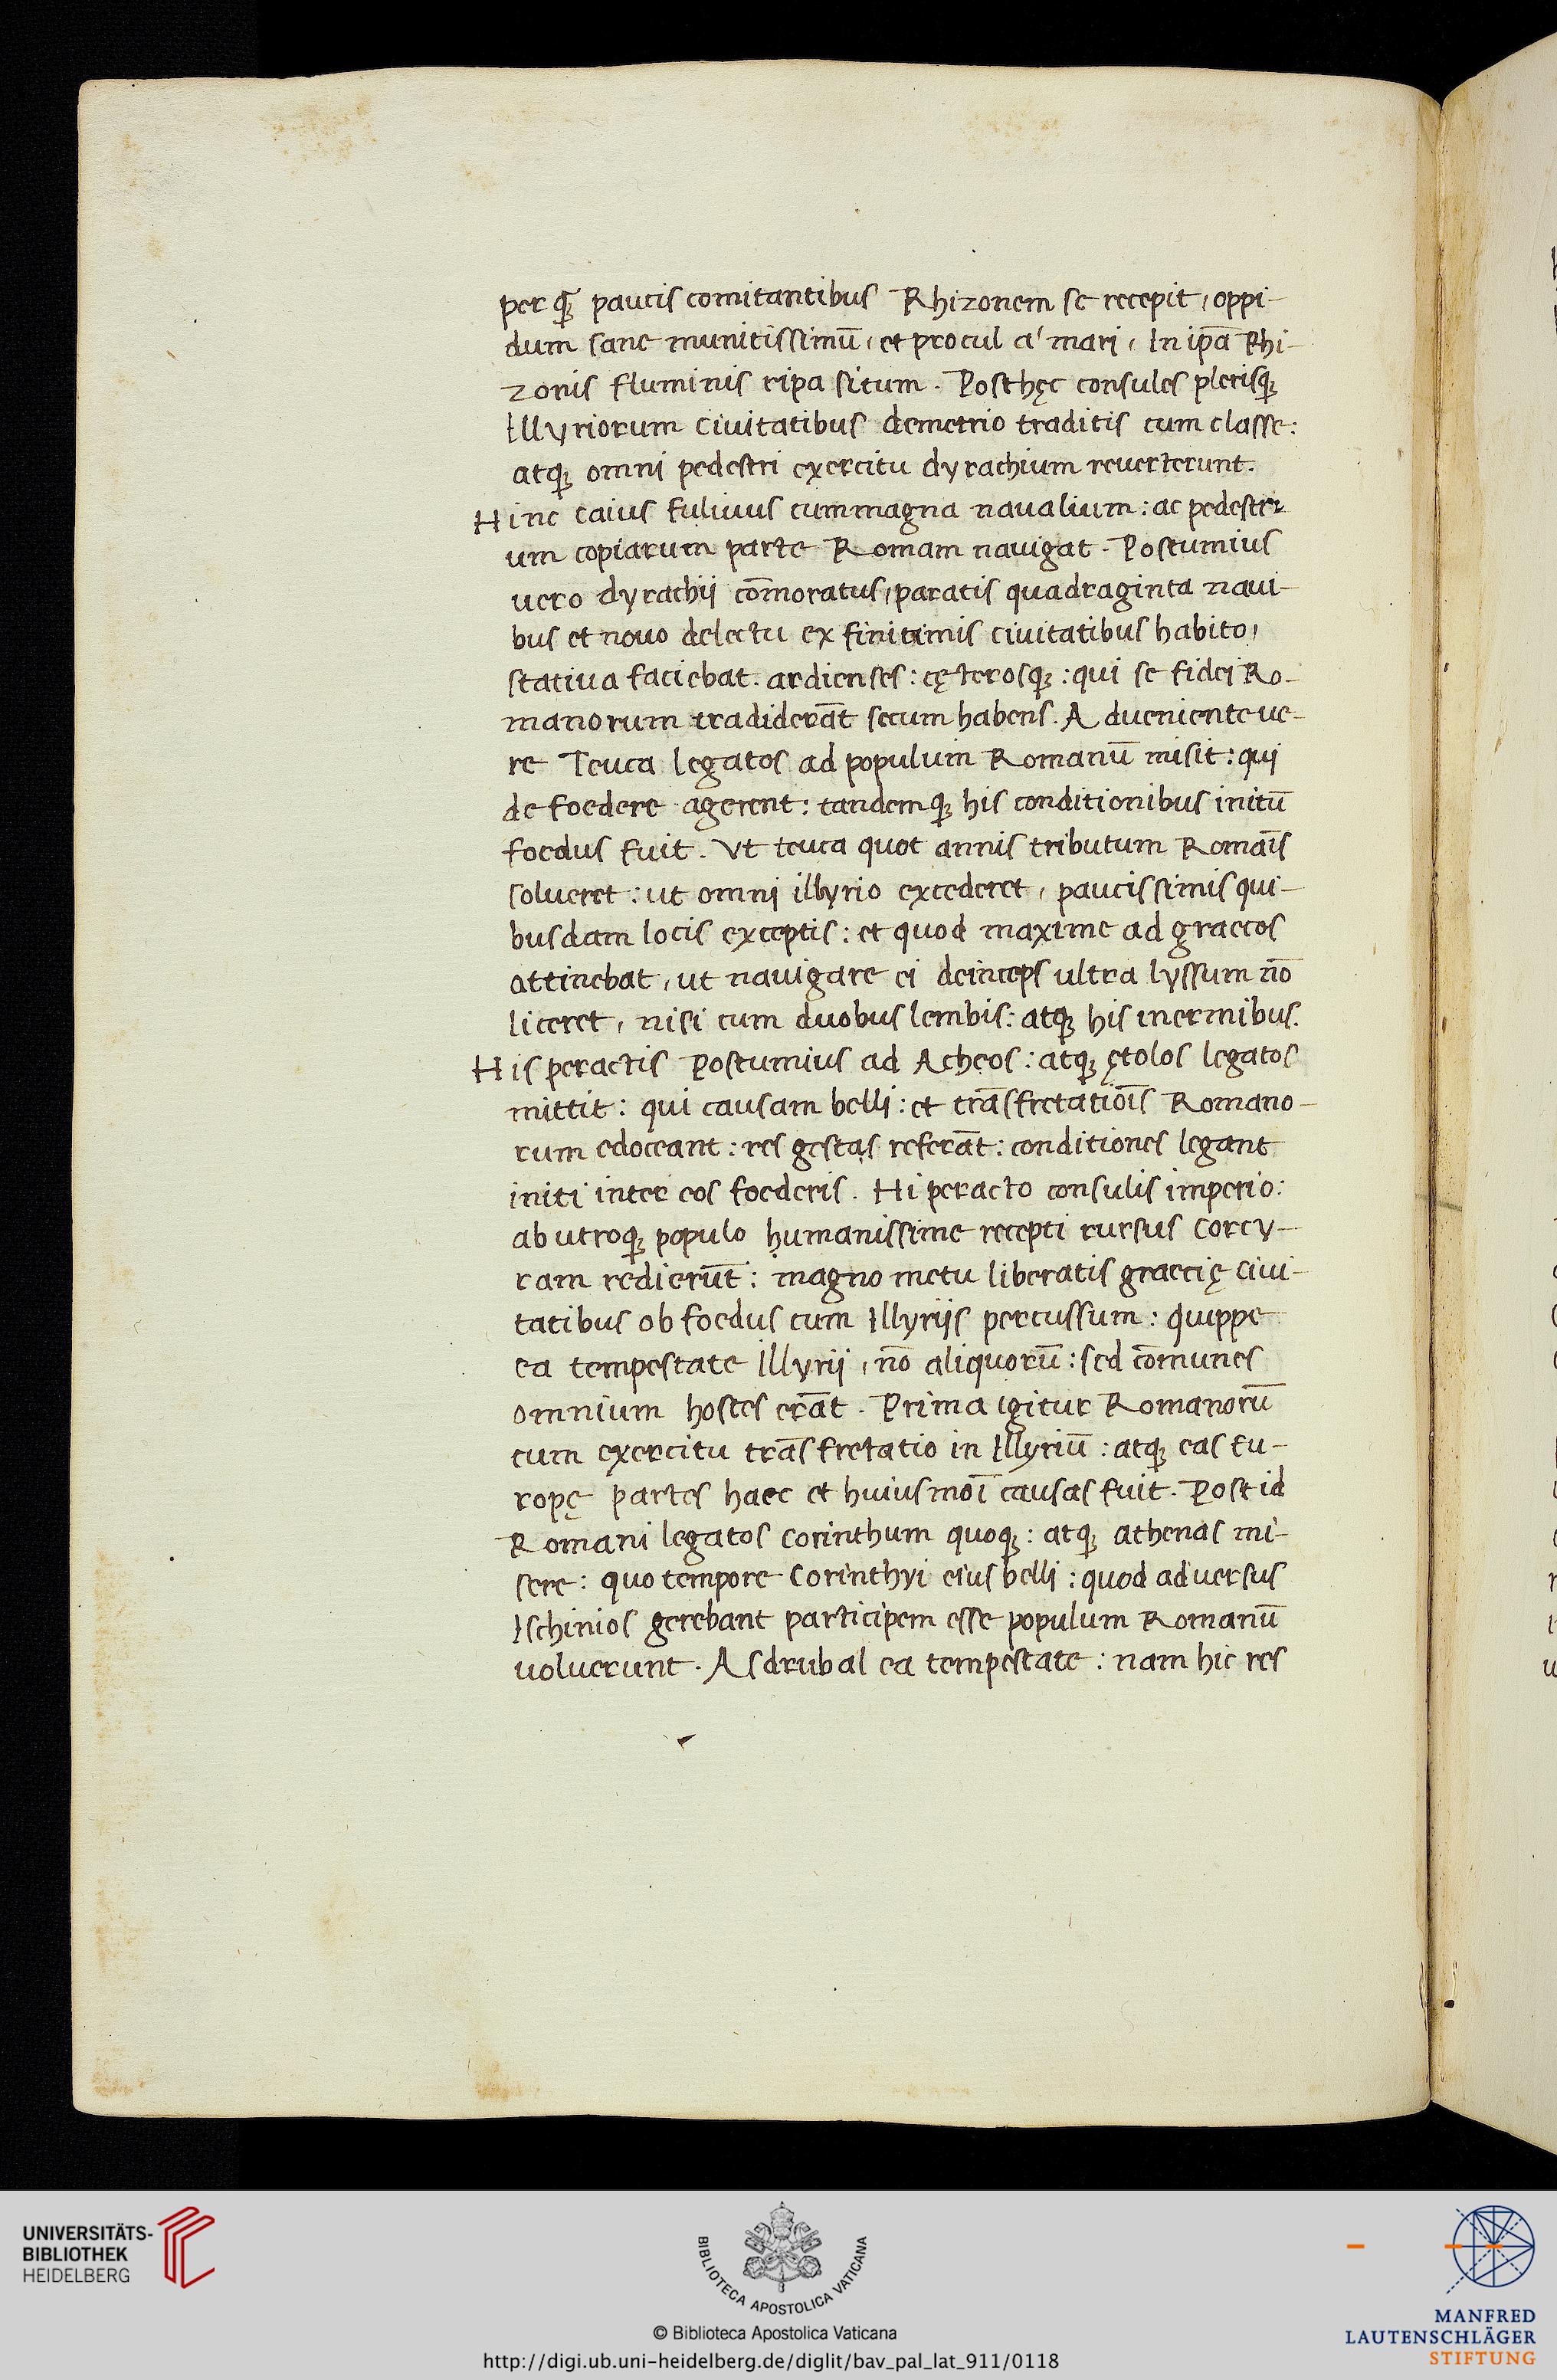 per ꝙ̄ paucis comitantibus Rhizonem se recepit, oppi-
dum sane munitissimū, et procul a' mari, In ipā Rhi-
zonis fluminis ripa situm. Posthęc consules plerisq;
Illyriorum ciuitatibus demetrio traditis cum classe:
atq; omni pedestri exercitu dyrachium reuerterunt.
Hinc caius fuluius cum magna naualium: ac pedestri
um copiarum parte Romam nauigat. Postumius
uero dyrachij cōmoratus, paratis quadraginta naui-
bus et nouo delectu ex finitimis ciuitatibus habito,
statiua faciebat. ardienses: cęterosq;: qui se fidei Ro-
manorum tradiderāt secum habens. Adueniente ue-
re Teuca legatos ad populum Romanū misit: qui
de foedere agerent: tandemq; his conditionibus initū
foedus fuit. Vt teuca quot annis tributum Romāis
solueret: ut omni illyrio excederet, paucissimis qui-
busdam locis exceptis: et quod maxime ad graecos
attinebat, ut nauigare ei deinceps ultra lyssum nō
liceret, nisi cum duobus lembis: atq; his inermibus.
His peractis Postumius ad Acheos: atq; ętolos legatos
mittit: qui causam belli: et trāsfretatiōis Romano-
rum edoceant: res gestas referāt: conditiones legant
initi inter eos foederis. Hi peracto consulis imperio:
ab utroq; populo humanissime recepti rursus Corcy-
ram redierūt: magno metu liberatis graecię ciui-
tatibus ob foedus cum Illyrijs percussum: Quippe
ea tempestate Illyrij, nō aliquorū: sed cōmunes
omnium hostes erāt. Prima igitur Romanorū
cum exercitu trāsfretatio in Illyriū: atq; eas Eu-
ropę partes haec et huiusmoī causas fuit. Post id
Romani legatos Corinthum quoq;: atq; athenas mi-
sere: quo tempore Corinthyi eius belli: quod aduersus
Ischinios gerebant participem esse populum Romanū
uoluerunt. Asdrubal ea tempestate: nam hic res
UNIVERSITÄTS-
BIBLIOTHEK
HEIDELBERG
BIBLIOTECA APOSTOLICA VATICANA
© Biblioteca Apostolica Vaticana
http://digi.ub.uni-heidelberg.de/diglit/bav_pal_lat_911/0118
MANFRED
LAUTENSCHLÄGER
STIFTUNG